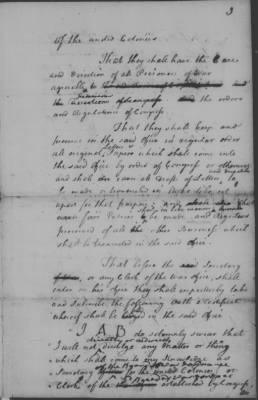 3
of the united Colonies
That they shall have the Care
and Direction of all Prisoners of War
agreeable to
the orders
and Regulations of Congress
That they shall keep and
preserve in the said Office in regular order
all original Letters & Papers which shall come into
the said Office by order of Congress or otherwise
and shall also cause all Draft of Letters to
be made or transcribed in Books to be set
apart for that purpose and
cause fair Entries to be made and Registers
preserved of all the other Business which
shall be transacted in the said Office.
That before the Secretary
or any Clerk of the War Office, shall
enter on his Office they shall respectively take
and subscribe the following Oath a Certificate
whereof shall be in the said Office
I A B do solemnly swear that
directly or indirectly
I will not divulge any Matter or Thing
which shall come to my Knowledge as
Secretary of the Board of War and Ordnance
for the united Colonies or
Clerk of the established by Congress